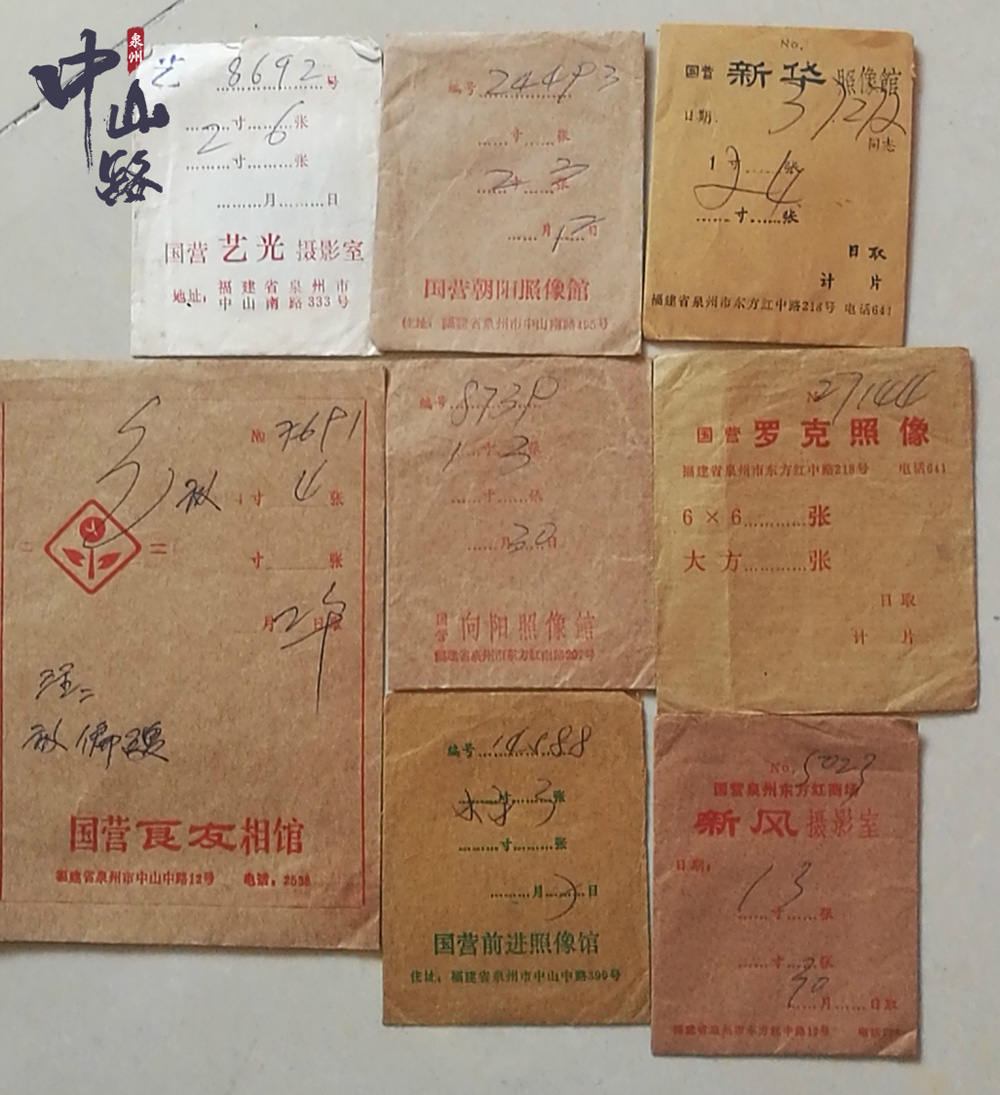 泉州
中山路
艺 8692号
2寸6张
寸 张
月 日
国营艺光摄影室
地址：福建省泉州市
中山南路333号
编号 24493
寸 张
寸 张
月 日
国营朝阳照像館
住址：福建省泉州市中山南路
No.
国营新华照像館
日期.
同志
1寸 张
寸 张
日取
计 片
福建省泉州市东方红中路218号 电话641
№ 7691
寸 4 张
寸 张
月 日
国营良友相馆
福建省泉州市中山中路12号 电话：2538
编号 8739
1寸3张
寸 张
月30日
国营向阳照像館
福建省泉州市东方红南路207号
№ 27144
国营罗克照像
福建省泉州市东方红中路218号 电话641
6×6 张
大方 张
日取
计 片
编号
寸 3 张
寸 张
月 日
国营前进照像馆
住址：福建省泉州市中山中路
No. 5023
国营泉州东方红商场
新风摄影室
日期：
1寸3张
寸 张
月 日取
福建省泉州市东方红中路12号 电话